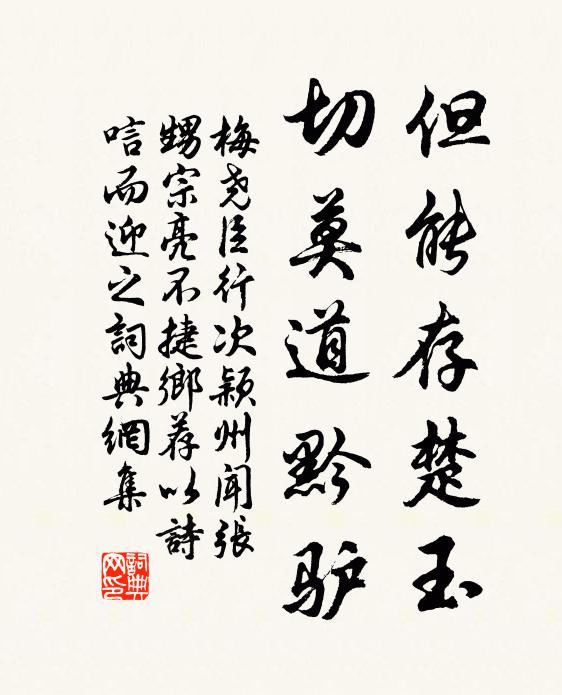 但能存楚玉
切莫道黔驴
梅尧臣行次颍州闻張
甥宗亮不捷鄉荐以詩
唁而迎之詞典網集
詞典网印